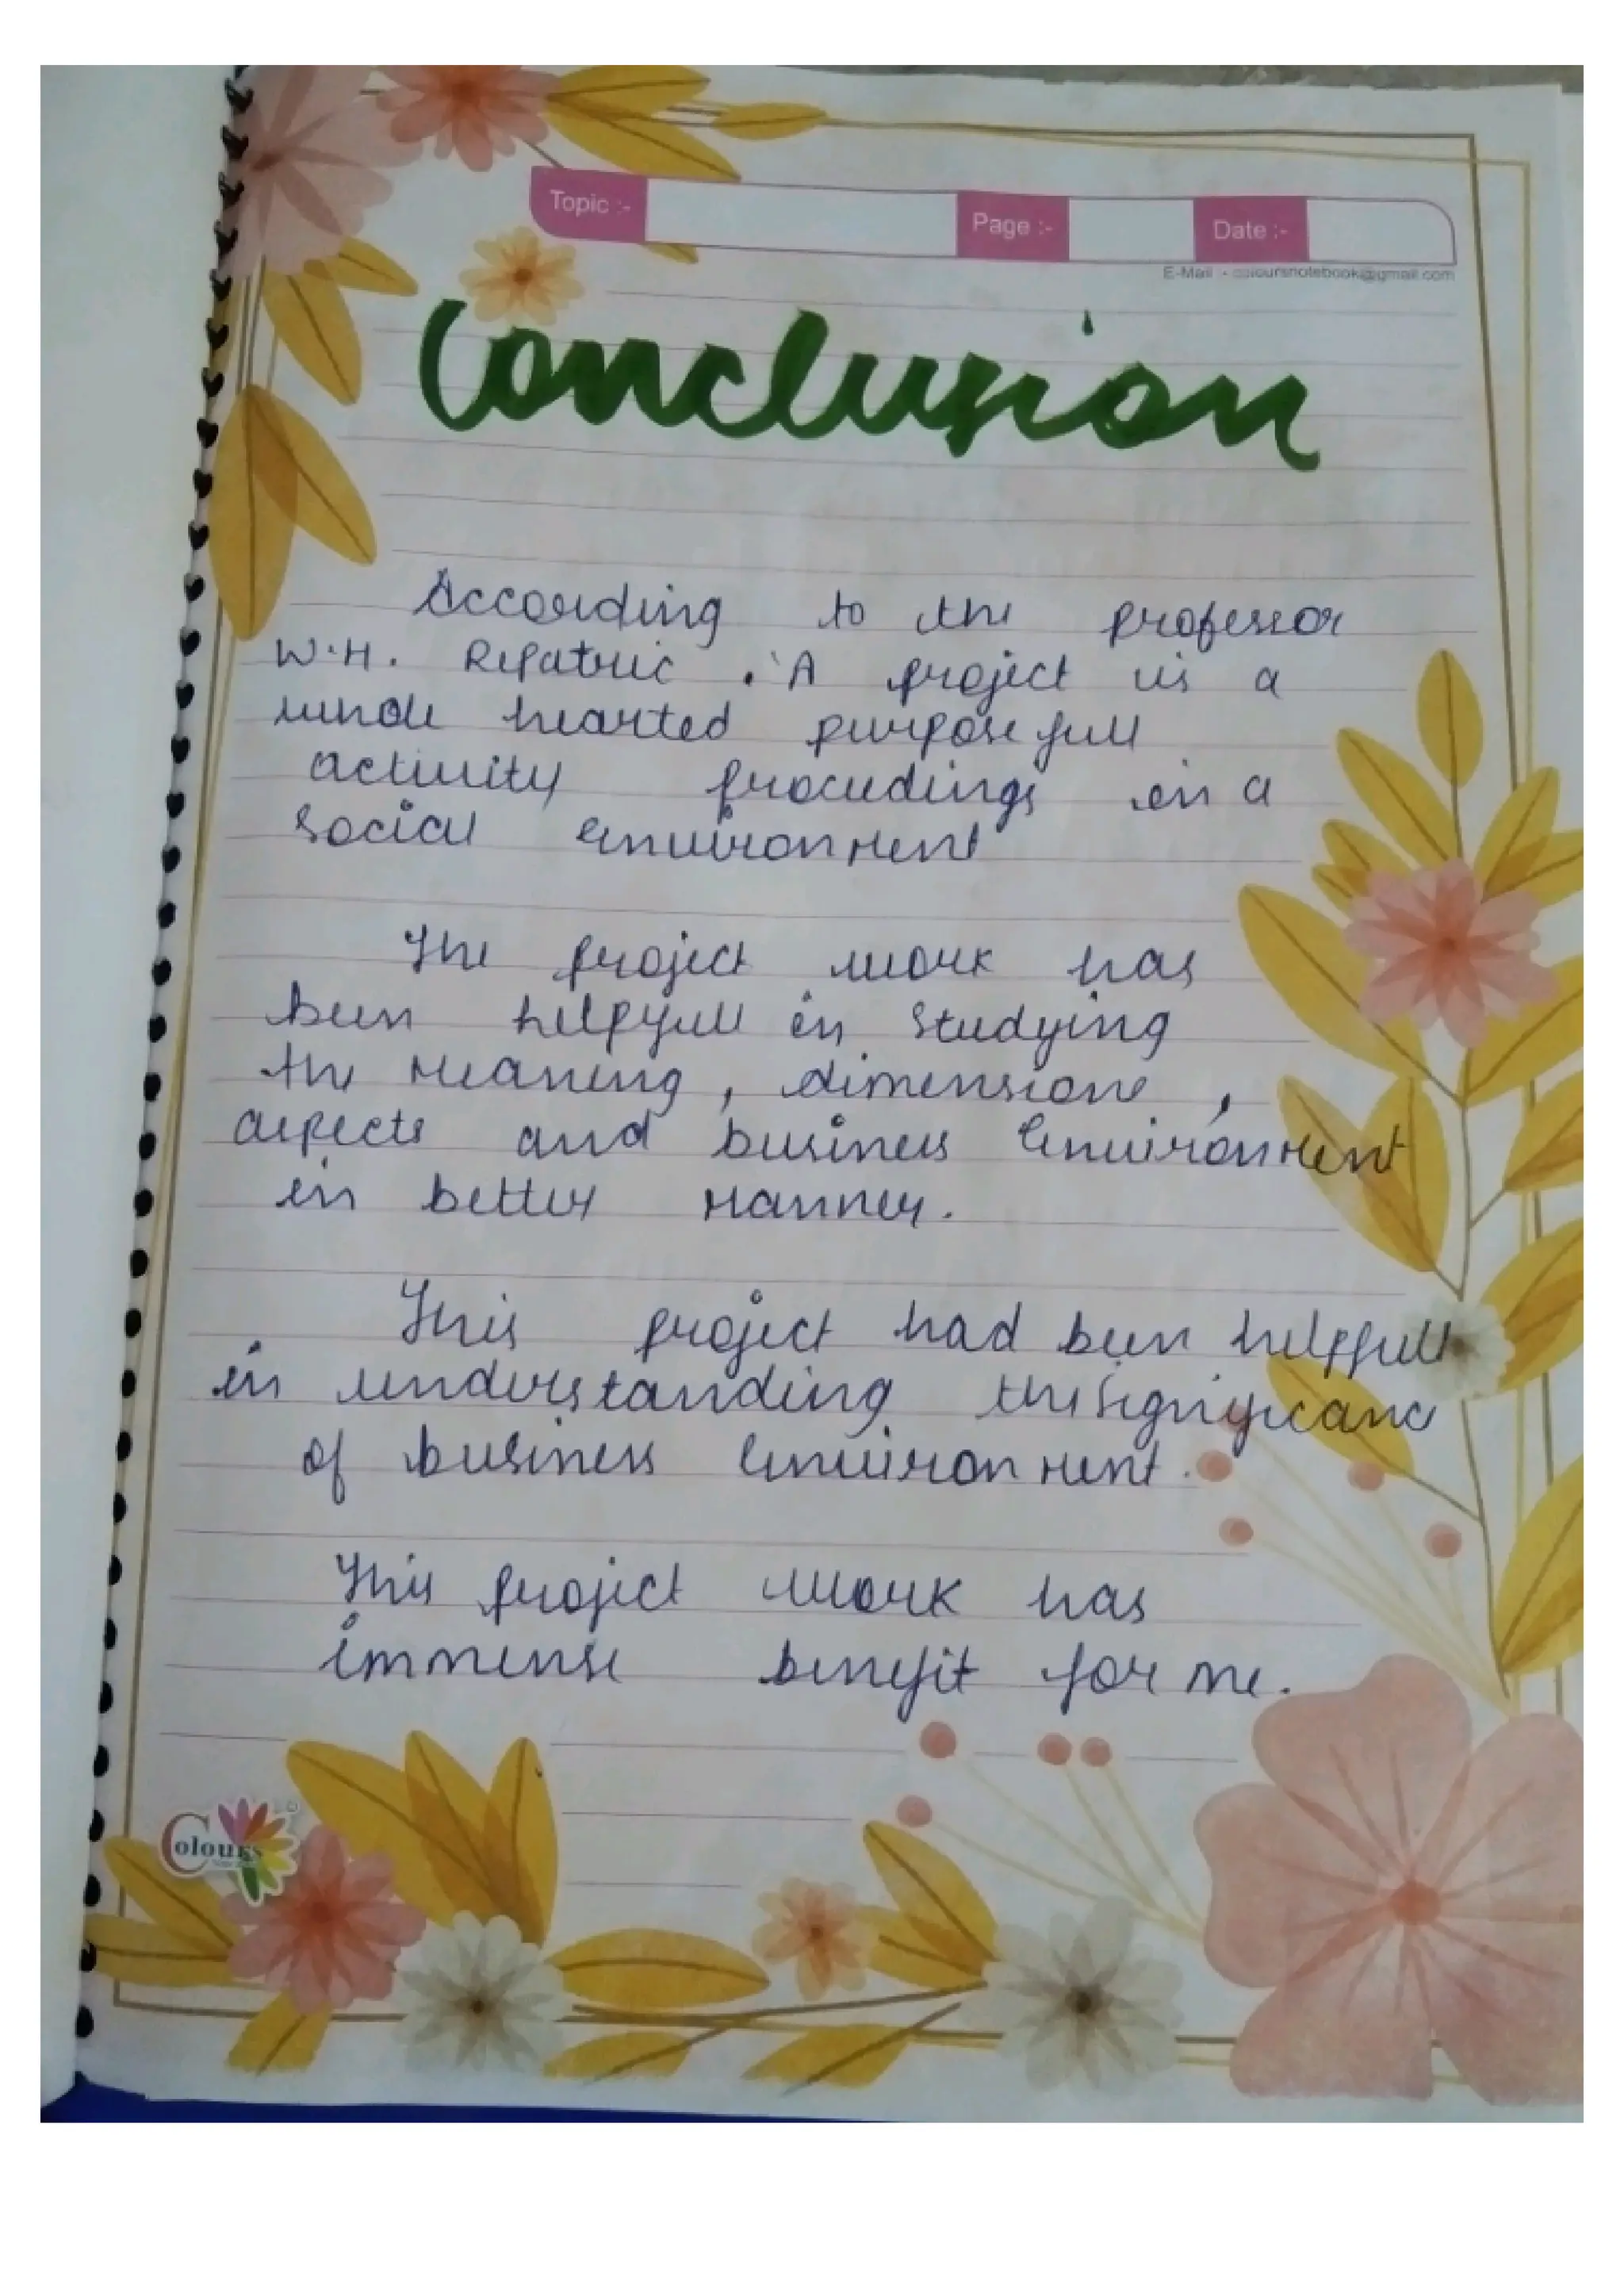 Topic :- Page :- Date :-
E-Mail - coloursnotebook@gmail.com
Conclusion
According to the professor
W.H. Repatric . 'A project is a
whole hearted purposefull
activity procedings in a
social environment
The project work has
been helpfull in studying
the meaning, dimensions,
aspects and business environment
in better manner.
This project had been helpfull
in understanding the significanc
of business environment.
This project work has
immense benefit for me.
Colours